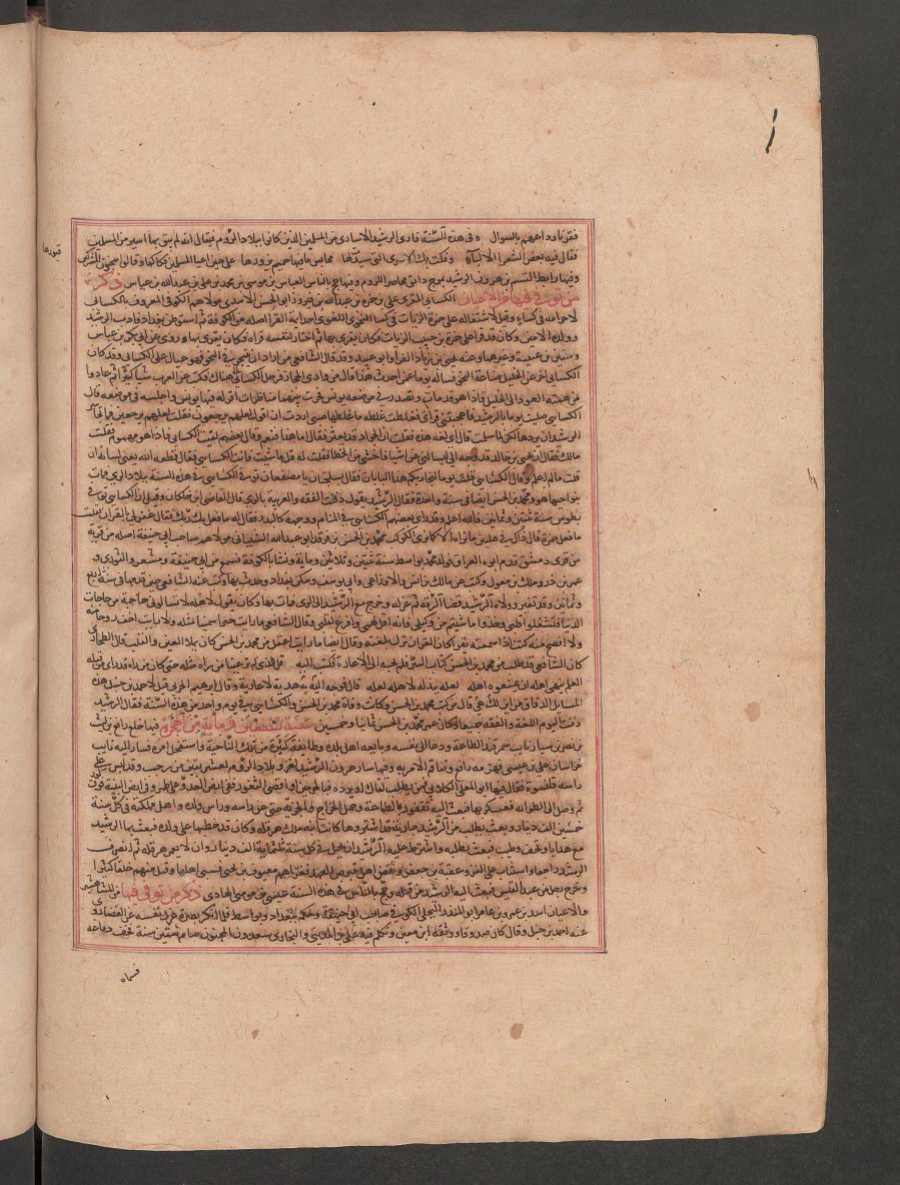 وفى هذه السنة فادى الرشيد الاسارى من المسلمين الذين كانوا ببلاد الروم فيقال انه لم يبق بها اسير من المسلمين
فقال فيه بعض الشعرا وفكت بك الاسرى التى شيدت لها محابس ما فيها حميم يزورها على حين اعيا المسلمين فكاكها وقالوا سجون المشركين
قبورها
وفيها رابط القسم بن هرون الرشيد بمرج دابق يحاصر الروم وفيها حج بالناس العباس بن موسى بن محمد بن على بن عبدالله بن عباس ذكر
من توفى فيها من الاعيان الكسائى المقرى على بن حمزة بن عبد الله بن فيروز ابو الحسن الاسدى مولاهم الكوفى المعروف بالكسائى
لاحرامه فى كساء وقيل لاشتغاله على حمزة الزيات فى كسا النحوى اللغوى احد ايمة القرا اصله من الكوفة ثم استوطن بغداد فادب الرشيد
وولده الامين وكان قد قرا على حمزة بن حبيب الزيات فكان يقرى بها ثم اختار لنفسه قراة فكان يقرى بها وروى عن ابى بكر بن عياش
وسفين بن عيينة وغيرهما وعنه يحيى بن زياد الفرا وابو عبيد وقد قال الشافعى من اراد ان يتبحر فى النحو فهو عيال على الكسائى وقد كان
الكسائى اخذ عن الخليل صناعة النحو فساله يوما عمن اخذت هذا قال من بوادى الحجاز فرحل الكسائى الى هناك فكتب عن العرب شيا كثيرا ثم عاد
الى الخليل فاذا هو قد مات وتصدر فى موضعه يونس فجرت بينهما مناظرات اقر له فيها يونس واجلسه فى موضعه قال
الكسائى صليت يوما بالرشيد فاعجبتنى قراتى فغلطت غلطة ما غلطها صبى اردت ان اقول لعلهم يرجعون فقلت لعلهم يرجعين فما تجاسر
الرشيد ان يردها لكن لما سلمت قال اى لغة هذه فقلت ان الجواد قد يعثر فقال اما هذا فنعم وقال بعضهم لقيت الكسائى فاذا هو مهموم فقلت
مالك فقال ان يحيى بن خالد قد وجه الى ليسالنى عن اشيا فاخشى من الخطا فقلت له قل ما شئت فانت الكسائى فقال قطعه الله يعنى لسانه ان
قلت ما لم اعلم وقال الكسائى قلت يوما لنجار بكم هذا البابان فقال بسلحتان يا مصفعان توفى الكسائى فى هذه السنة ببلاد الرى فمات
بنواحيها هو ومحمد بن الحسن ايضا فى سنة واحدة فقال الرشيد يقول دفنت الفقه والعربية بالرى قال القاضى ابن خلكان وقيل ان الكسائى توفى
بطوس سنة ثنتين وثمانين فالله اعلم وقد راى بعضهم الكسائى فى المنام ووجهه كالبدر فقال له ما فعل بك ربك فقال غفر لى بالقران فقلت
ما فعل حمزة قال ذاك فى عليين ما نراه الا كما نرى الكوكب محمد بن الحسن بن فرقد ابو عبدالله الشيبانى مولاهم صاحب ابى حنيفة اصله من قرية
من قرى دمشق قدم ابوه العراق فولد محمد بواسط سنة ثنتين وثلاثين وماية ونشا بالكوفة فسمع من ابى حنيفة ومسعر والثورى و
عمر بن ذر ومالك بن مغول وكتب عن مالك بن انس والاوزاعى وابى يوسف وسكن بغداد وحدث بها وكتب عنه الشافعى حين قدمها فى سنة اربع
وثمانين وولاه الرشيد قضا الرقة ثم عزله وخرج مع الرشيد الى الرى فمات بها وكان يقول لاهله لا تسالونى حاجة من حاجات
الدنيا فتشغلوا قلبى وخذوا ما شئتم من وكيلى فانه اقل لهمى وافرغ لقلبى وقال الشافعى ما رايت حبرا سمينا مثله ولا رايت اخف روحا منه
ولا افصح منه كنت اذا سمعته يقرا كان القران نزل بلغته وقال ايضا ما رايت اعقل من محمد بن الحسن كان يملا العين والقلب قال الطحاوى
كان الشافعى قد طلب من محمد بن الحسن كتاب السير فلم يجبه الى الاعارة فكتب اليه قل للذى لم تر عينا من راه مثله حتى كان من راه قد راى من قبله
العلم ينهى اهله ان يمنعوه اهله لعله يبذله لاهله لعله قال فوجه اليه به هدية لا عارية وقال ابرهيم الحربى قيل لاحمد بن حنبل هذه
المسايل الدقاق من اين لك هى قال من كتب محمد بن الحسن وكانت وفاة محمد بن الحسن والكسائى فى يوم واحد من هذه السنة فقال الرشيد
دفنت اليوم اللغة والفقه جميعا وكان عمر محمد بن الحسن ثمانيا وخمسين سنة تسعين وماية من الهجرة فيها خلع رافع بن ليث
بن نصر بن سيار نايب سمرقند الطاعة ودعا الى نفسه وبايعه اهل بلده وطايفة كثيرة من تلك الناحية واستفحل امره فسار اليه نايب
خراسان على بن عيسى فهزمه رافع وتفاقم الامر به وفيها سار هرون الرشيد لغزو بلاد الروم لعشر بقين من رجب وقد لبس على
راسه قلنسوة فقال فيها ابو المعلى الكلابى فمن يطلب لقاك او يرده فبالحرمين او اقصى الثغور ففى ارض العدو على طمر وفى ارض البنية فوق كور
ثم وصل الى الطوانة فعسكر بها فبعث اليه نقفور بالطاعة وحمل الخراج والجزية حتى عن راسه وراس ولده واهل مملكته فى كل سنة
خمسين الف دينار وبعث يطلب من الرشيد جارية قد اسروها كانت ابنة ملك هرقلة وكان قد خطبها على ولده فبعث بها الرشيد
مع هدايا وتحف وطيب فبعث يطلبه واشترط عليه الرشيد ان يحمل فى كل سنة ثلثماية الف دينار وان لا يعمر هرقلة ثم انصرف
الرشيد راجعا واستناب على الغزو عقبة بن جعفر ونقض اهل قبرص العهد فغزاهم معيوف بن يحيى فسبى اهلها وقتل منهم خلقا كثيرا
وخرج رجل من عبد القيس فبعث اليه الرشيد من قتله وحج بالناس فى هذه السنة عيسى بن موسى الهادى ذكر من توفى فيها من المشاهير
والاعيان اسد بن عمرو بن عامر ابو المنذر البجلى الكوفى صاحب ابى حنيفة وحكم ببغداد وبواسط فلما انكر بصره عزل نفسه عن القضا روى
عنه احمد بن حنبل وقال كان صدوقا ووثقه ابن معين وتكلم فيه على بن المدينى والبخارى سعدون المجنون صام ستين سنة فخف دماغه
فسماه